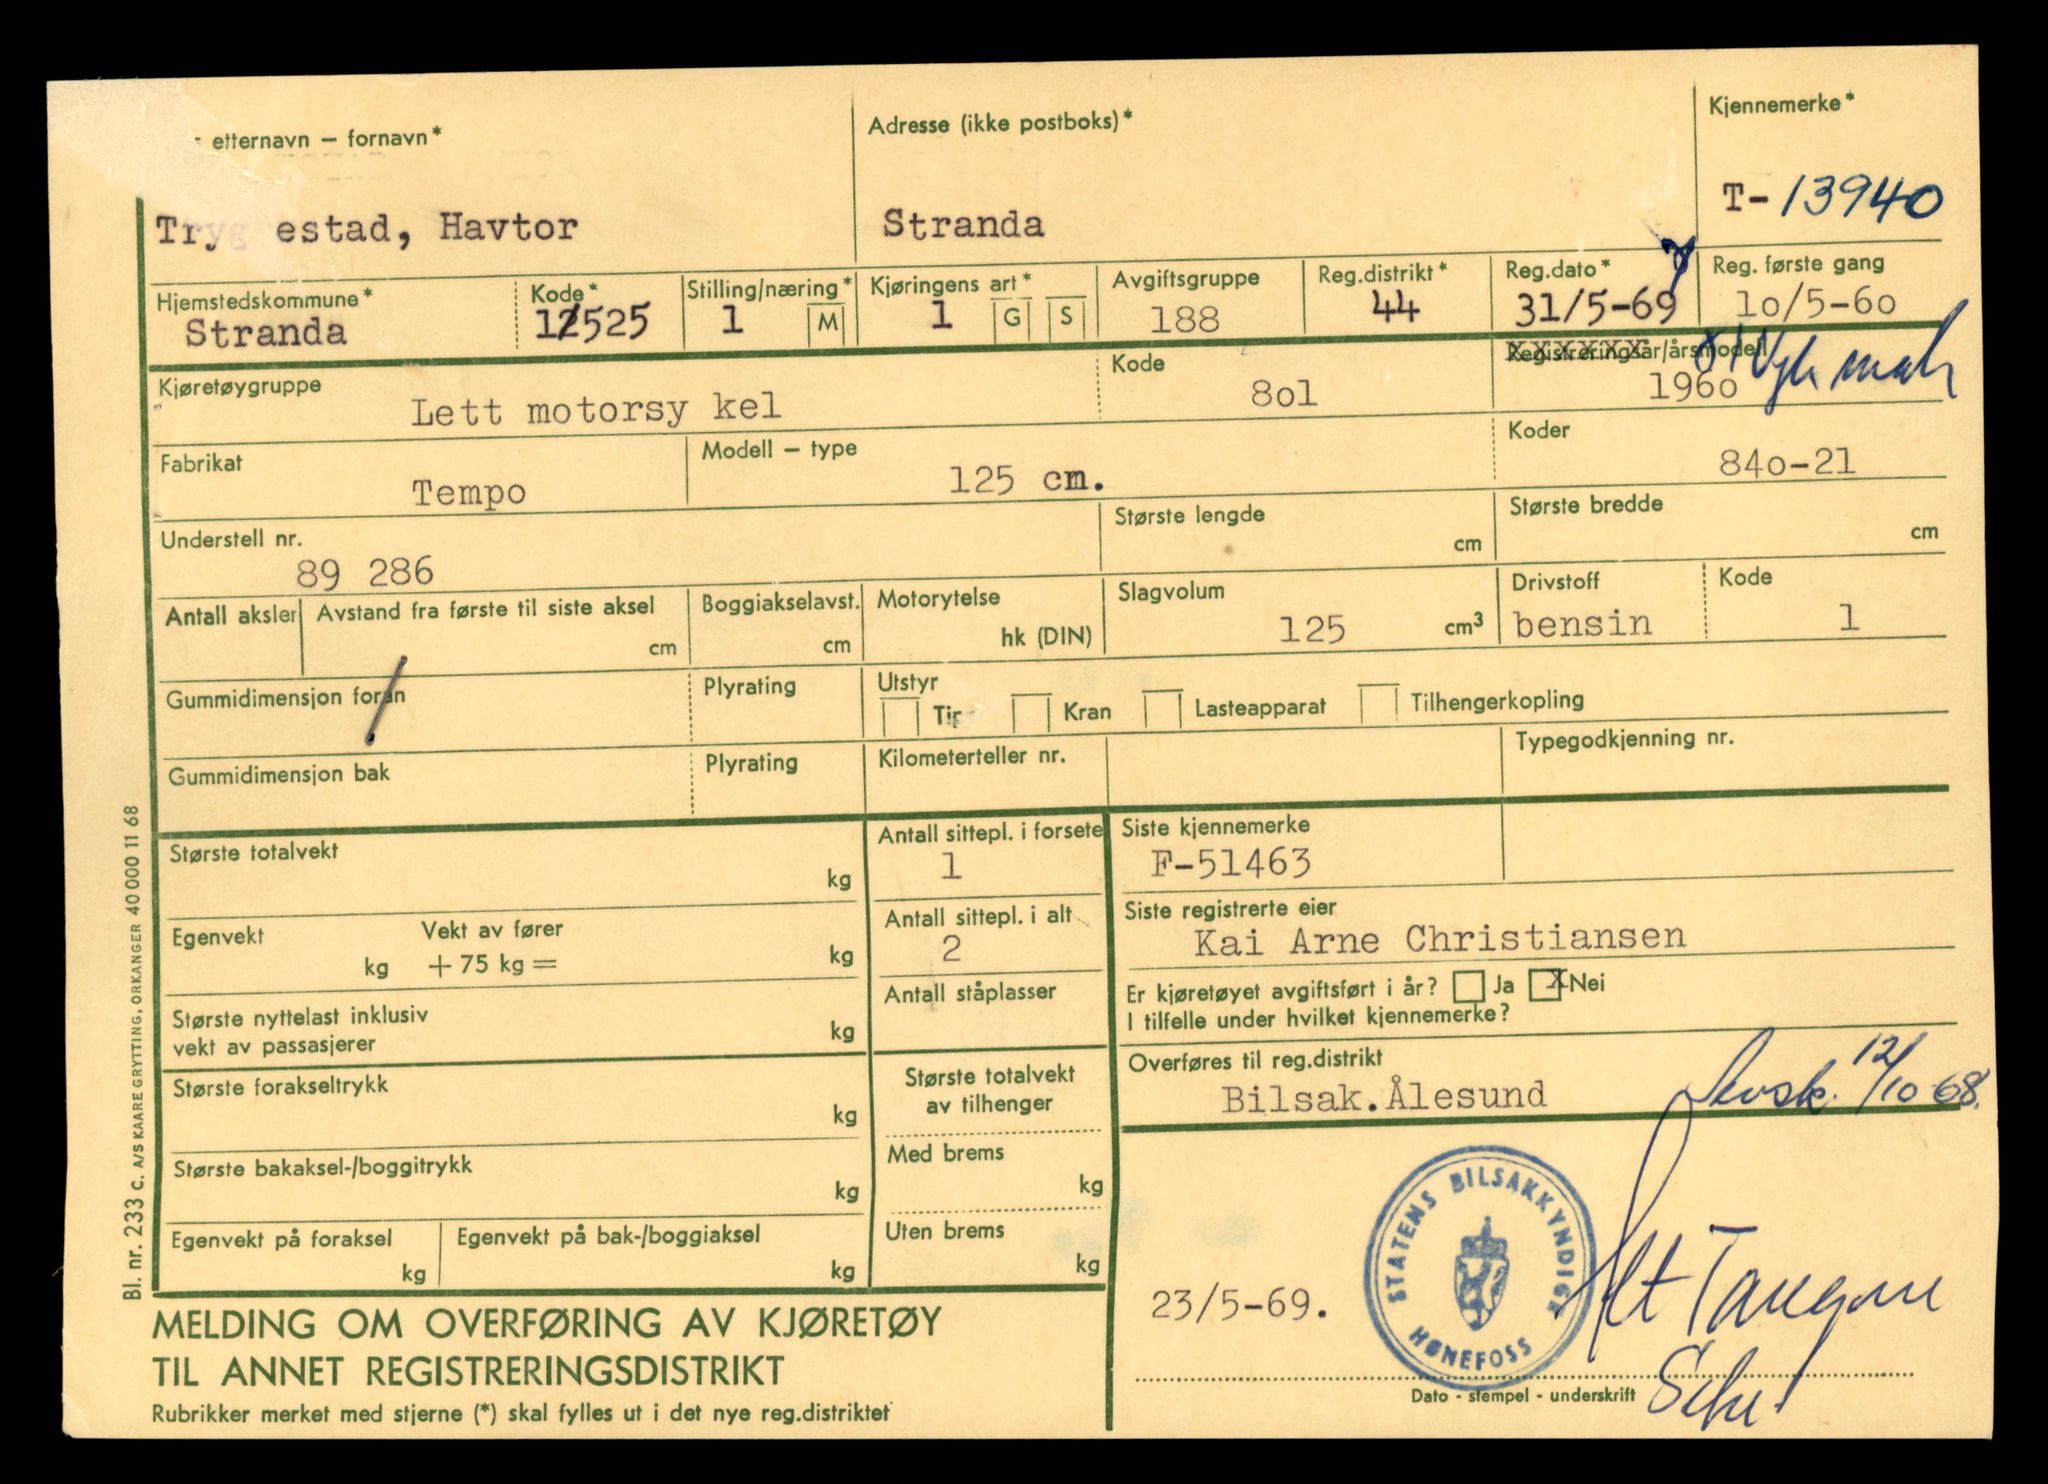 etternavn – fornavn* Adresse (ikke postboks)* Kjennemerke*
Tryg estad, Havtor Stranda T- 13940
Hjemstedskommune* Kode* Stilling/næring* Kjøringens art* Avgiftsgruppe Reg.distrikt* Reg.dato* Reg. første gang
Stranda 1525 1 M 1 G S 188 44 31/5-69 10/5-60
Kjøretøygruppe Kode Registreringsår/årsmodell
Lett motorsy kel 801 1960
Fabrikat Modell – type Koder
Tempo 125 cm. 840-21
Understell nr. Største lengde Største bredde
89 286 cm cm
Antall aksler Avstand fra første til siste aksel Boggiakselavst. Motorytelse Slagvolum Drivstoff Kode
cm cm hk (DIN) 125 cm³ bensin 1
Gummidimensjon foran Plyrating Utstyr
Tir Kran Lasteapparat Tilhengerkopling
Gummidimensjon bak Plyrating Kilometerteller nr. Typegodkjenning nr.
Største totalvekt kg Antall sittepl. i forsete Siste kjennemerke
1 F-51463
Egenvekt kg Vekt av fører + 75 kg = kg Antall sittepl. i alt Siste registrerte eier
2 Kai Arne Christiansen
Største nyttelast inklusiv Antall ståplasser Er kjøretøyet avgiftsført i år? Ja X Nei
vekt av passasjerer kg I tilfelle under hvilket kjennemerke?
Største forakseltrykk kg Største totalvekt Overføres til reg.distrikt
av tilhenger Bilsak.Ålesund 12/10-68.
Største bakaksel-/boggitrykk kg Med brems kg
Egenvekt på foraksel kg Egenvekt på bak-/boggiaksel kg Uten brems kg
STATENS BILSAKKYNDIGE
HØNEFOSS
23/5-69.
Dato - stempel - underskrift
MELDING OM OVERFØRING AV KJØRETØY
TIL ANNET REGISTRERINGSDISTRIKT
Rubrikker merket med stjerne (*) skal fylles ut i det nye reg.distriktet
Bl. nr. 233 c. A/S KAARE GRYTTING, ORKANGER 40 000 11 68